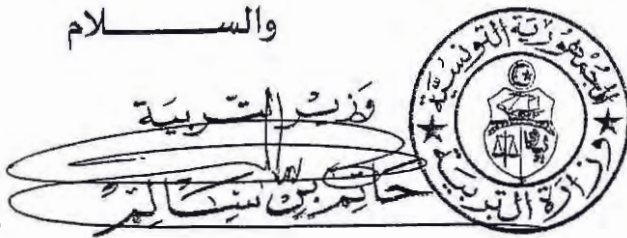 والســــــــلام
وزير التربية
حاتم بن سالم
الجمهورية التونسية
وزارة التربية